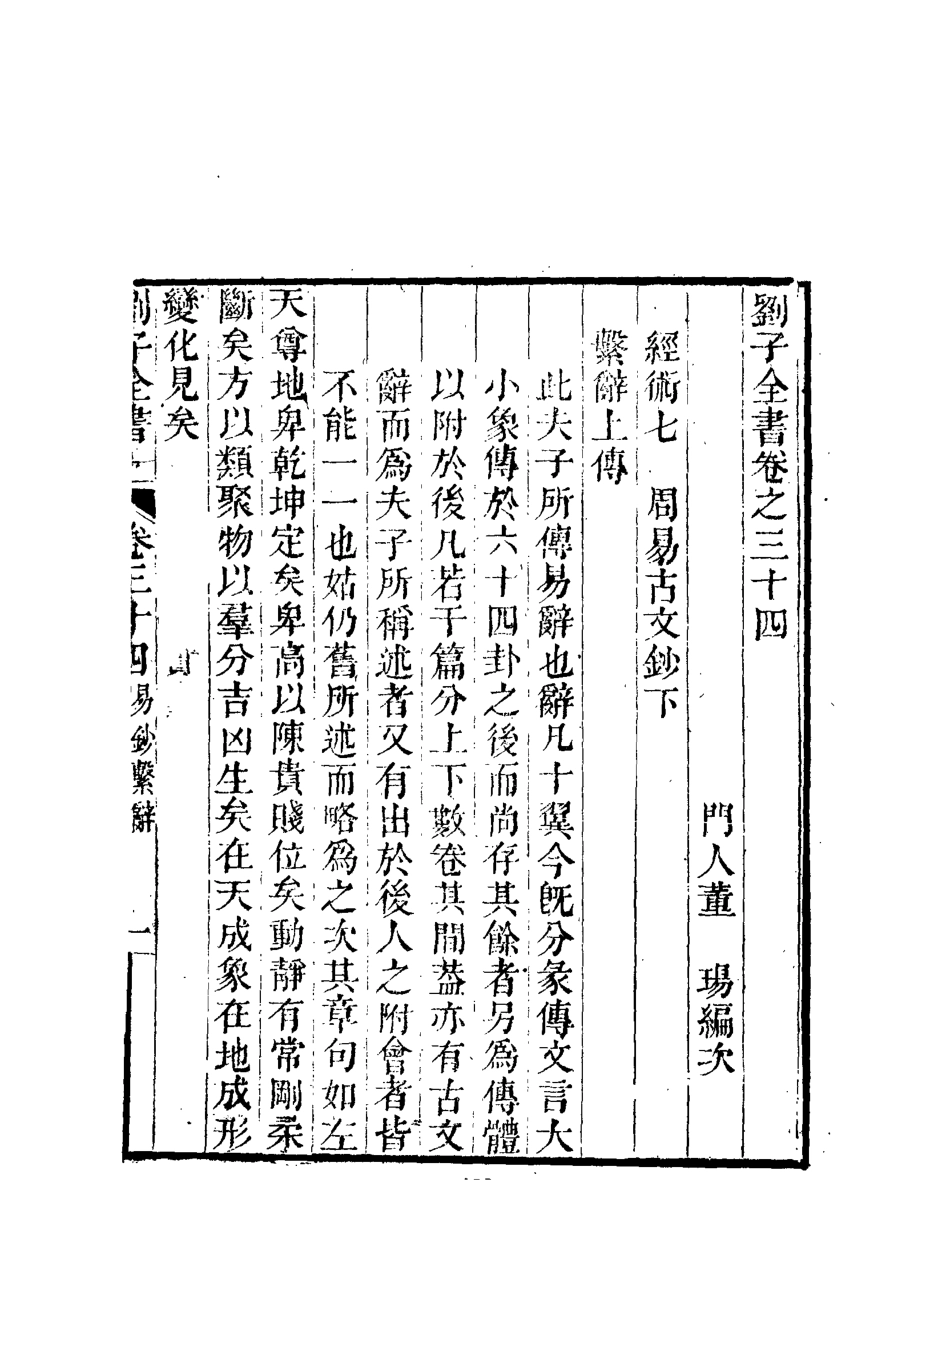 劉子全書卷之三十四
門人董　瑒編次
經術七　周易古文鈔下
繫辭上傳
此夫子所傳易辭也辭凡十翼今旣分彖傳文言大
小象傳於六十四卦之後而尚存其餘者另爲傳體
以附於後凡若干篇分上下數卷其間葢亦有古文
辭而爲夫子所稱述者又有出於後人之附會者皆
不能一一也姑仍舊所述而略爲之次其章句如左
天尊地卑乾坤定矣卑高以陳貴賤位矣動靜有常剛柔
斷矣方以類聚物以羣分吉凶生矣在天成象在地成形
變化見矣
劉子全書　卷三十四易鈔繫辭　一